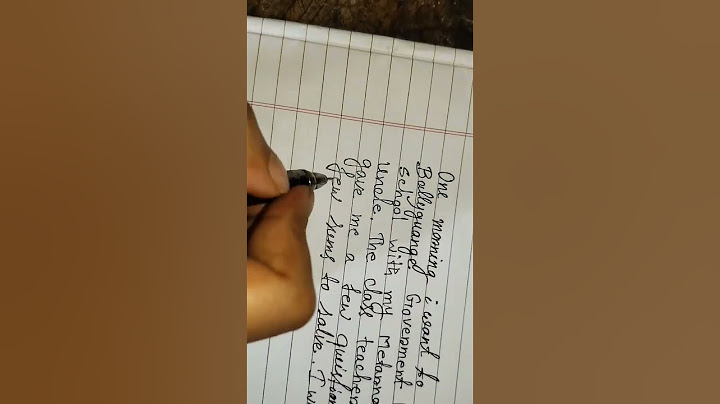 One morning i want to
Ballyguange Government
school with my
uncle. The class teacher
gave me a few
few sums to salve. I